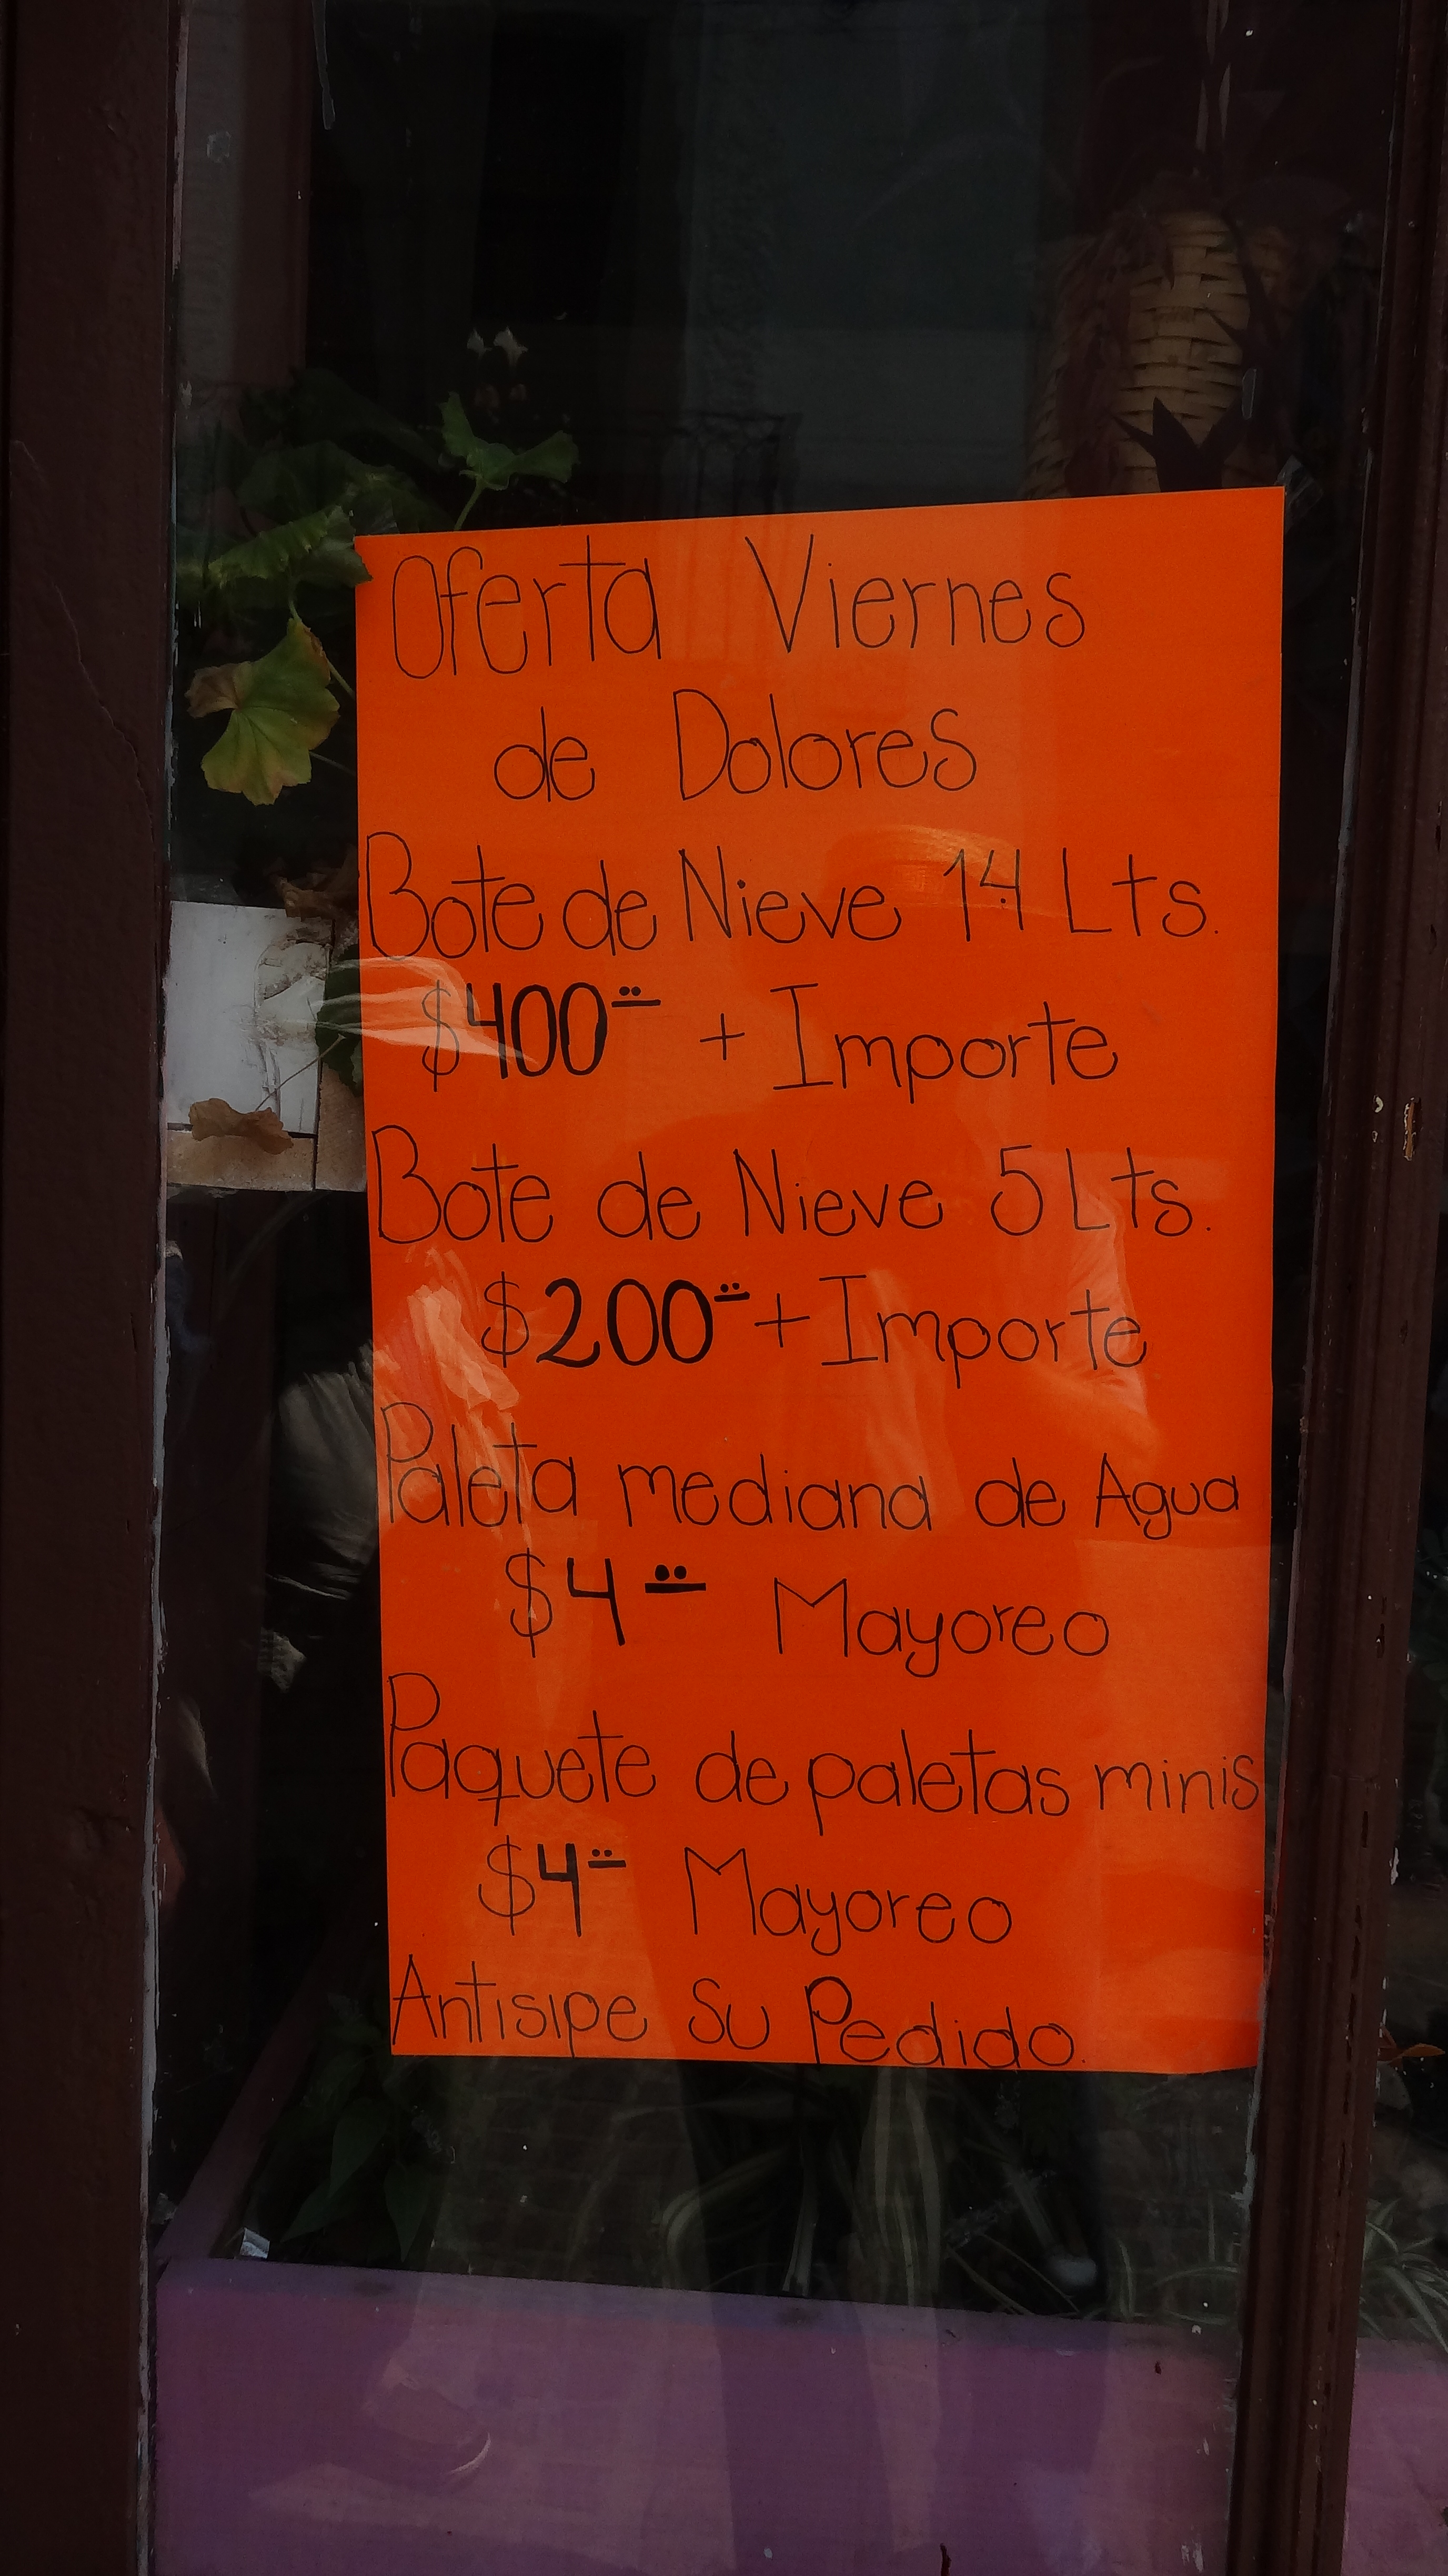 Oferta Viernes
de Dolores
Bote de Nieve 14 Lts.
$400 + Importe
Bote de Nieve 5 Lts.
$200 + Importe
Paleta mediana de Agua
$4 Mayoreo
Paquete de paletas minis
$4 Mayoreo
Antisipe Su Pedido.